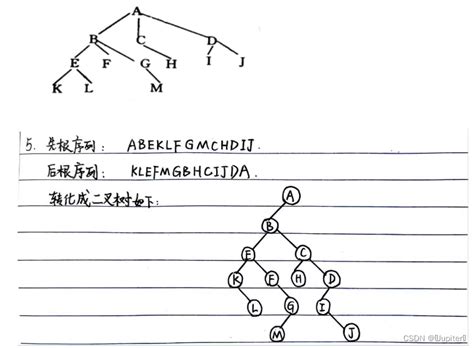 A
B C D
E F G H I J
K L M
5. 先根序列: ABEKLFGMCHDIJ.
后根序列: KLEFMGBHCIJDA.
转化成二叉树如下:
A
B
E C
K F H D
L G I
M J
CSDN @Jupiter